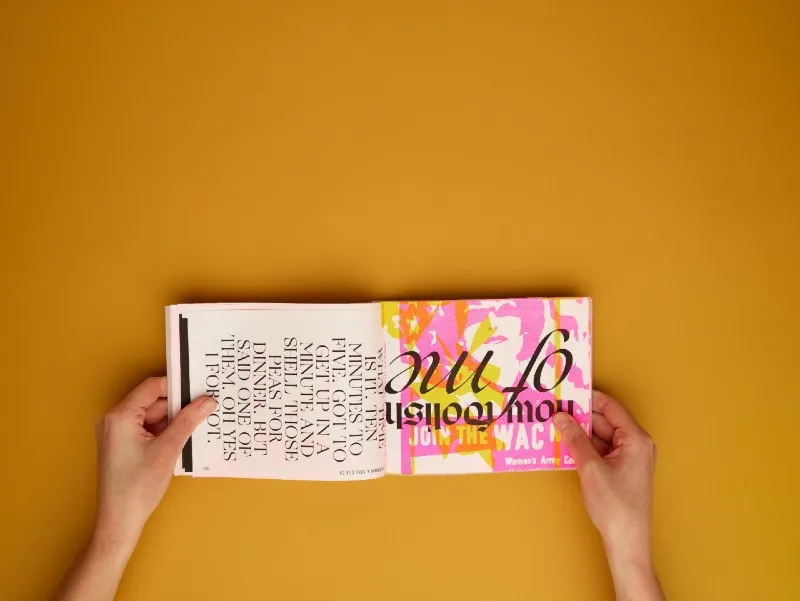 IS IT. TEN
MINUTES TO
FIVE. GOT TO
GET UP IN A
MINUTE AND
SHELL THOSE
PEAS FOR
DINNER. BUT
SAID ONE OF
THEM. OH YES
I
how foolish
of me
JOIN THE WAC
Women's Army